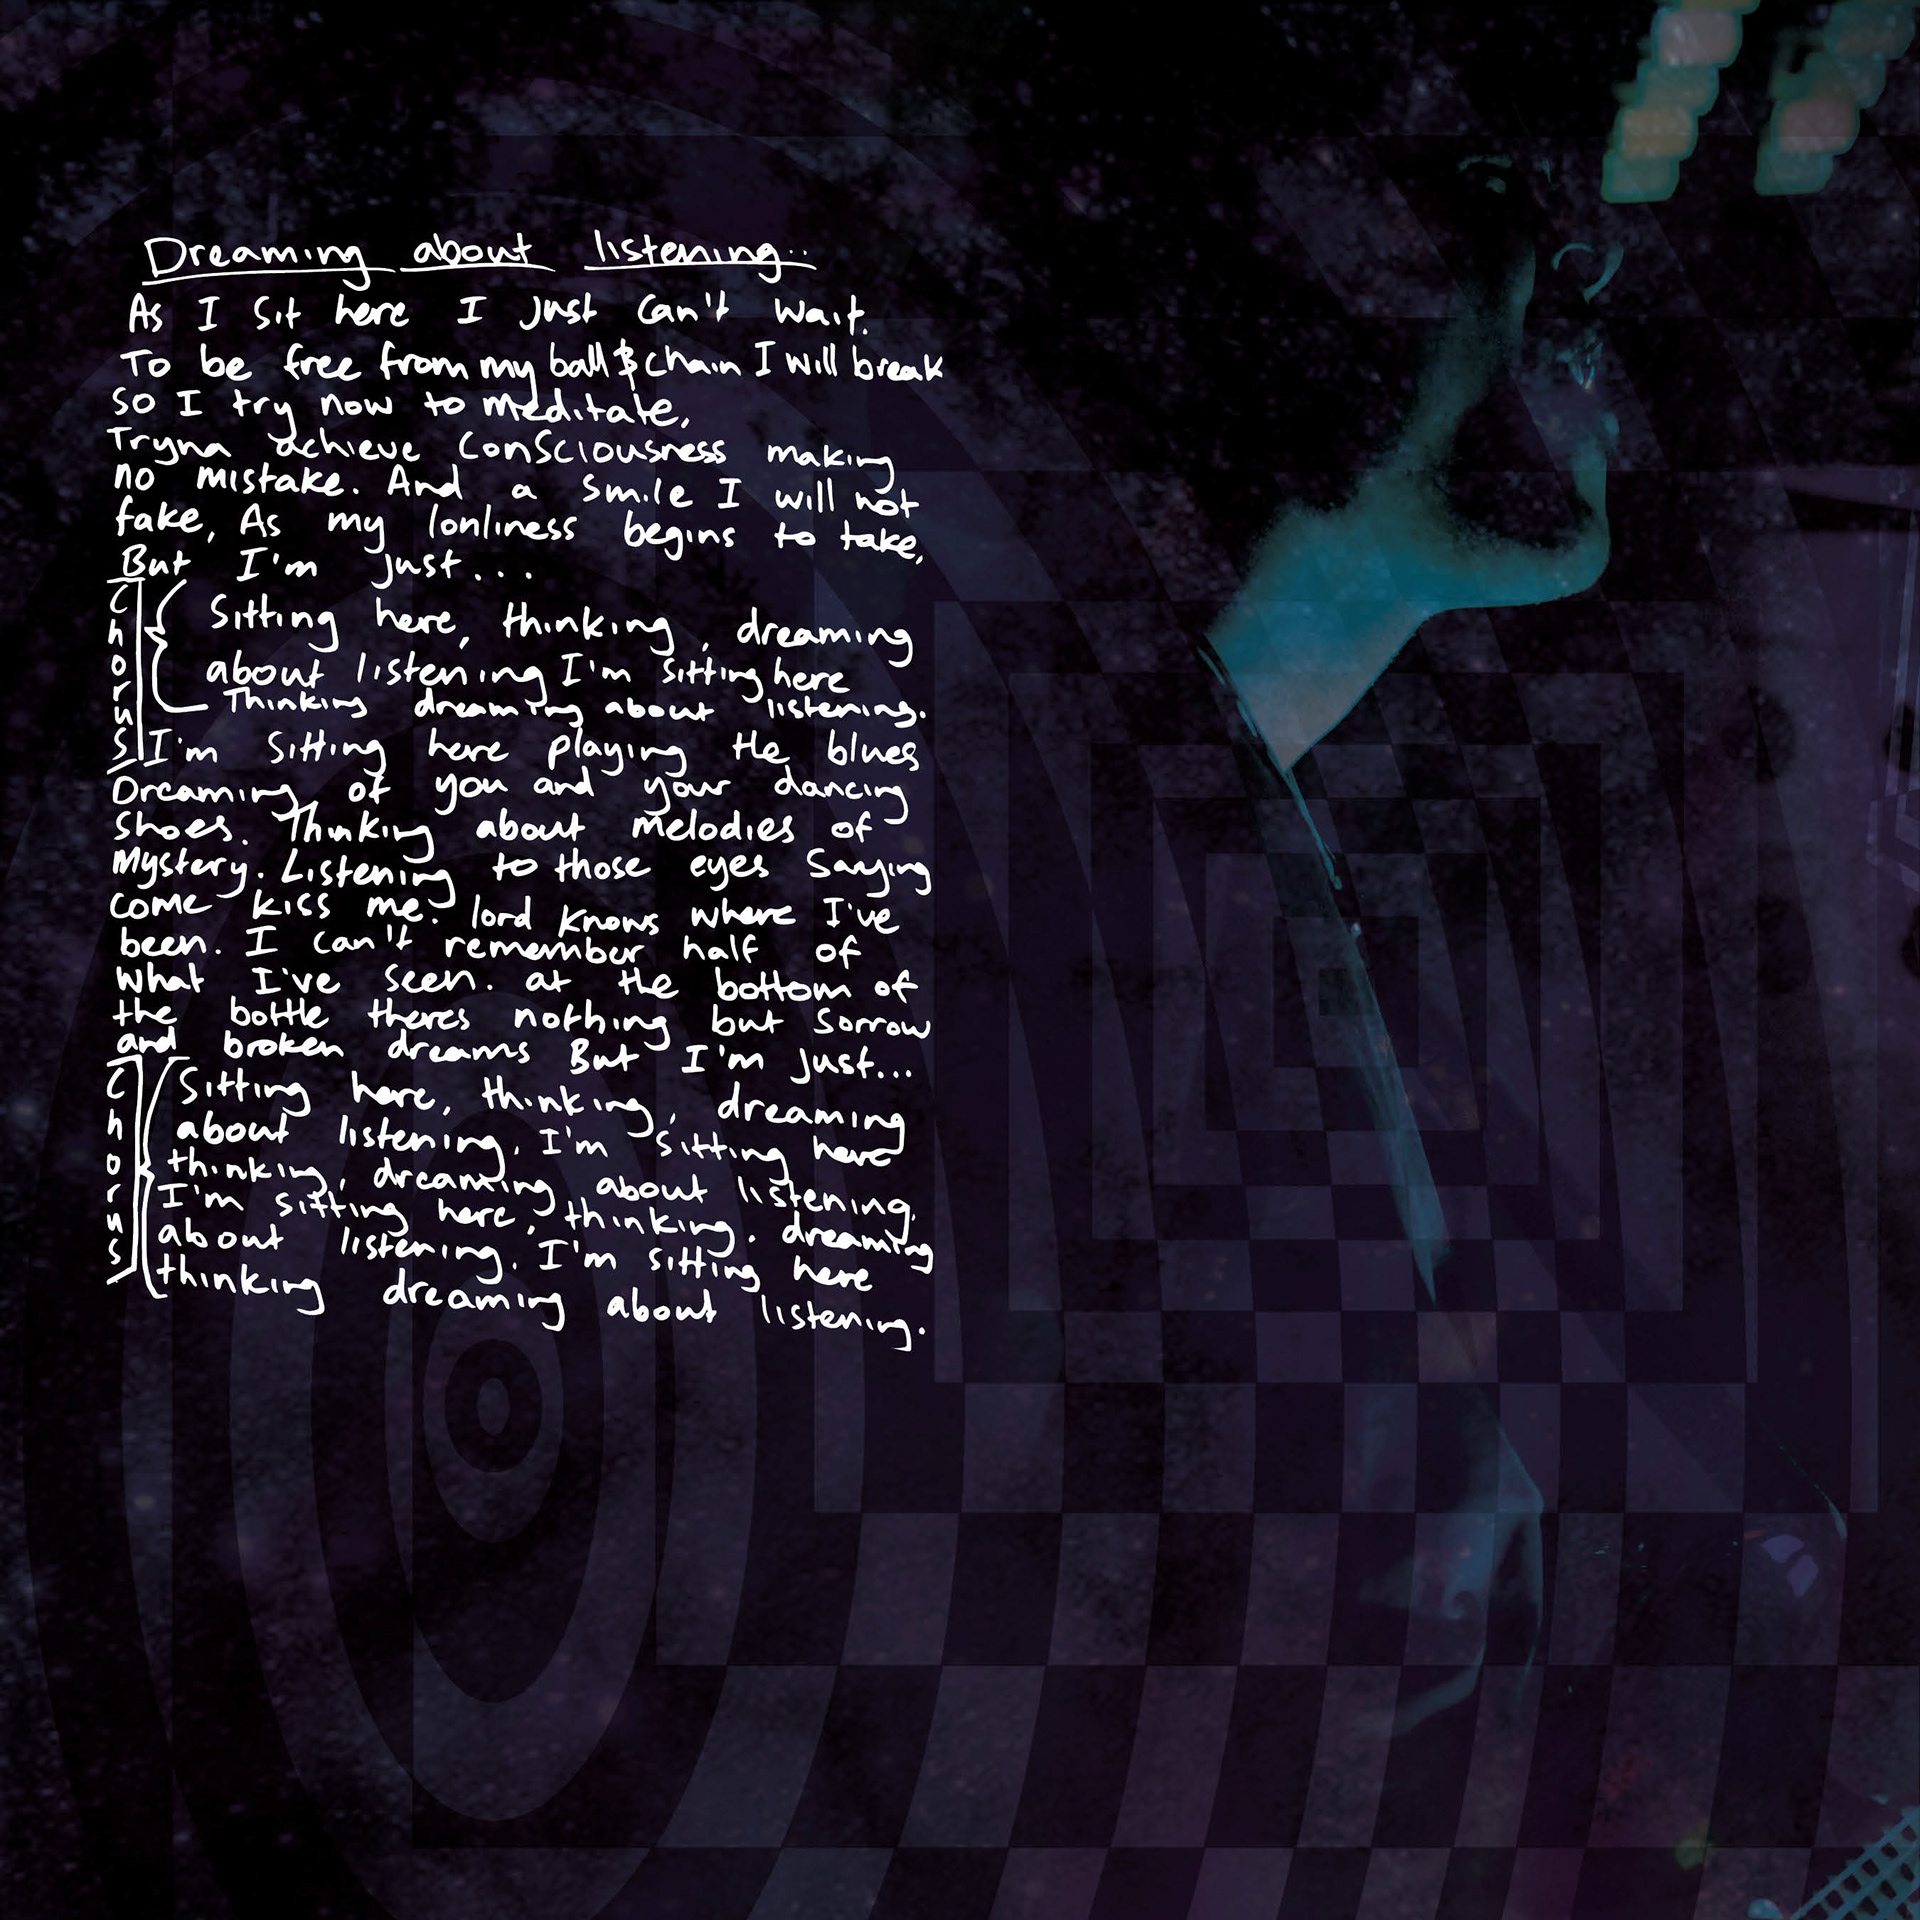 Dreaming about listening..
As I sit here I just can't wait.
To be free from my ball & chain I will break
so I try now to meditate,
Tryna achieve consciousness making
no mistake. And a smile I will not
fake, As my lonliness begins to take,
But I'm just...
Chorus
Sitting here, thinking, dreaming
about listening I'm sitting here
Thinking dreaming about listening.
I'm sitting here playing the blues
Dreaming of you and your dancing
shoes. Thinking about melodies of
Mystery. Listening to those eyes saying
come kiss me. lord knows where I've
been. I can't remember half of
what I've seen. at the bottom of
the bottle theres nothing but sorrow
and broken dreams But I'm just...
Chorus
Sitting here, thinking, dreaming
about listening. I'm sitting here
thinking, dreaming about listening.
I'm sitting here, thinking. dreaming
about listening. I'm sitting here
thinking dreaming about listening.